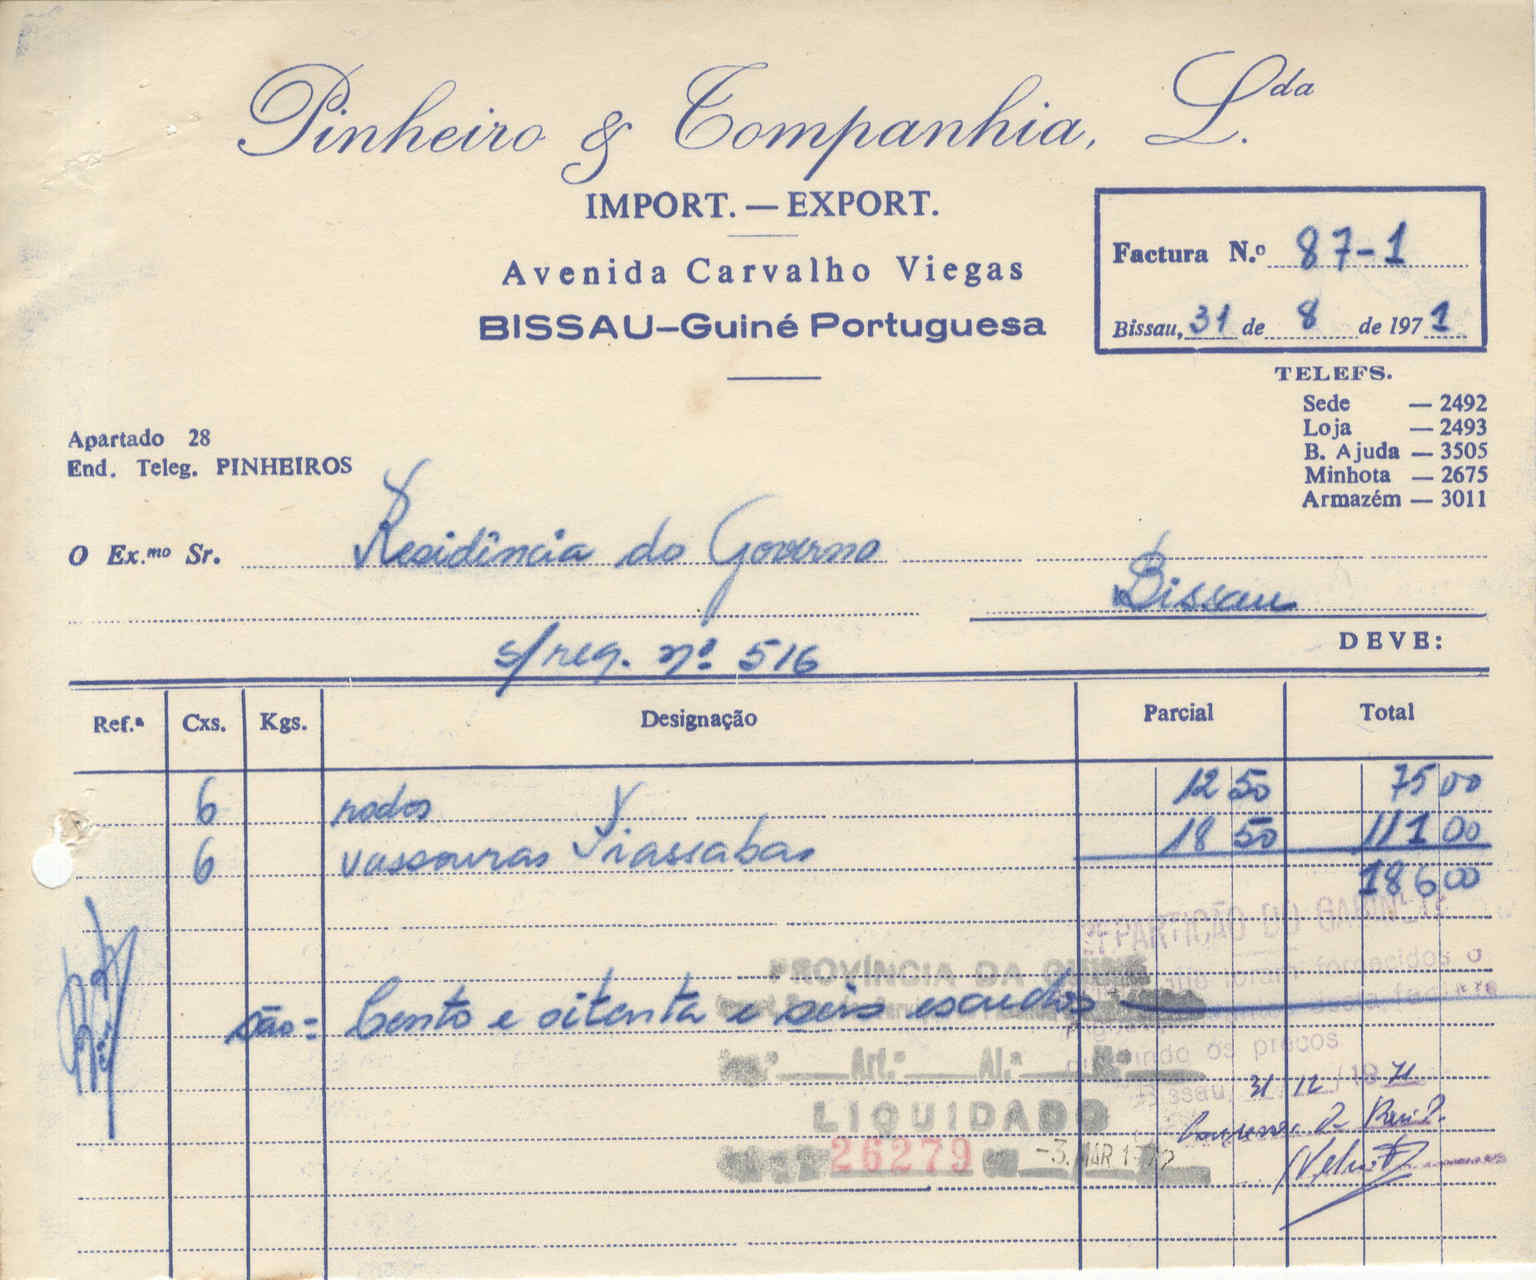 Pinheiro & Companhia, L.da
IMPORT. — EXPORT.
Avenida Carvalho Viegas
BISSAU—Guiné Portuguesa
Factura N.º 87-1
Bissau, 31 de 8 de 1971
TELEFS.
Sede — 2492
Loja — 2493
B. Ajuda — 3505
Minhota — 2675
Armazém — 3011
Apartado 28
End. Teleg. PINHEIROS
O Ex.mo Sr. Residência do Governo
Bissau
DEVE:
s/req. nº 516
Ref.ª Cxs. Kgs. Designação Parcial Total
6 rodos 12 50 75 00
6 vassouras Piassabas 18 50 111 00
186 00
REPARTIÇÃO DO GABINETE
PROVÍNCIA DA GUINÉ
foram fornecidos o
são = Cento e oitenta e seis escudos
os preços
Art.º Al.ª N.º
Bissau, 31/12/1971
LIQUIDADO
26279 -3. MAR 1972